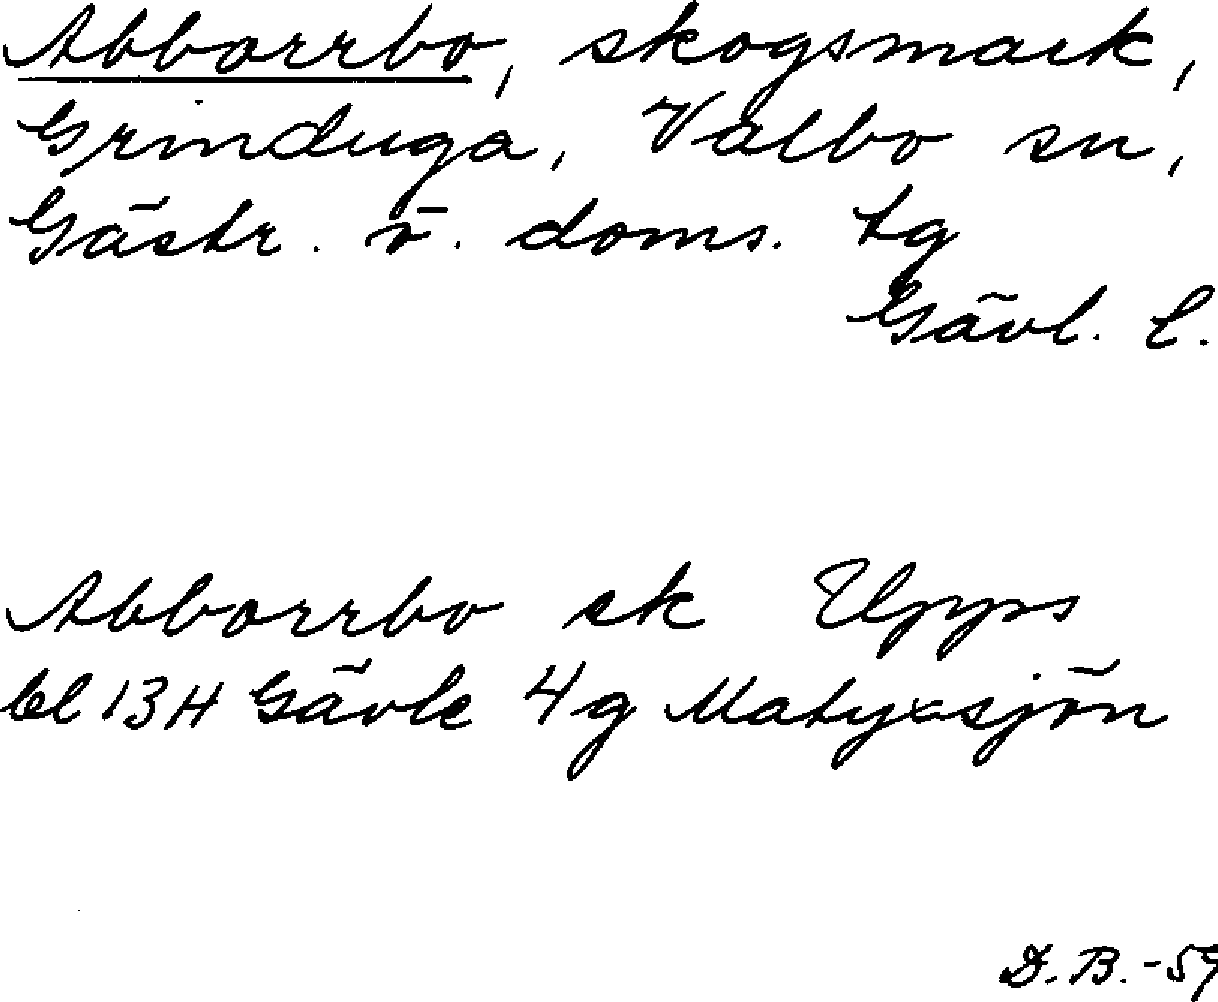 Abborrbo, skogsmark,
Grinduga, Valbo sn,
Gästr. ö. doms. tg
Gävl. l.
Abborrbo ek Upps
bl 13H Gävle 4g Matyxsjön
D.B.-59